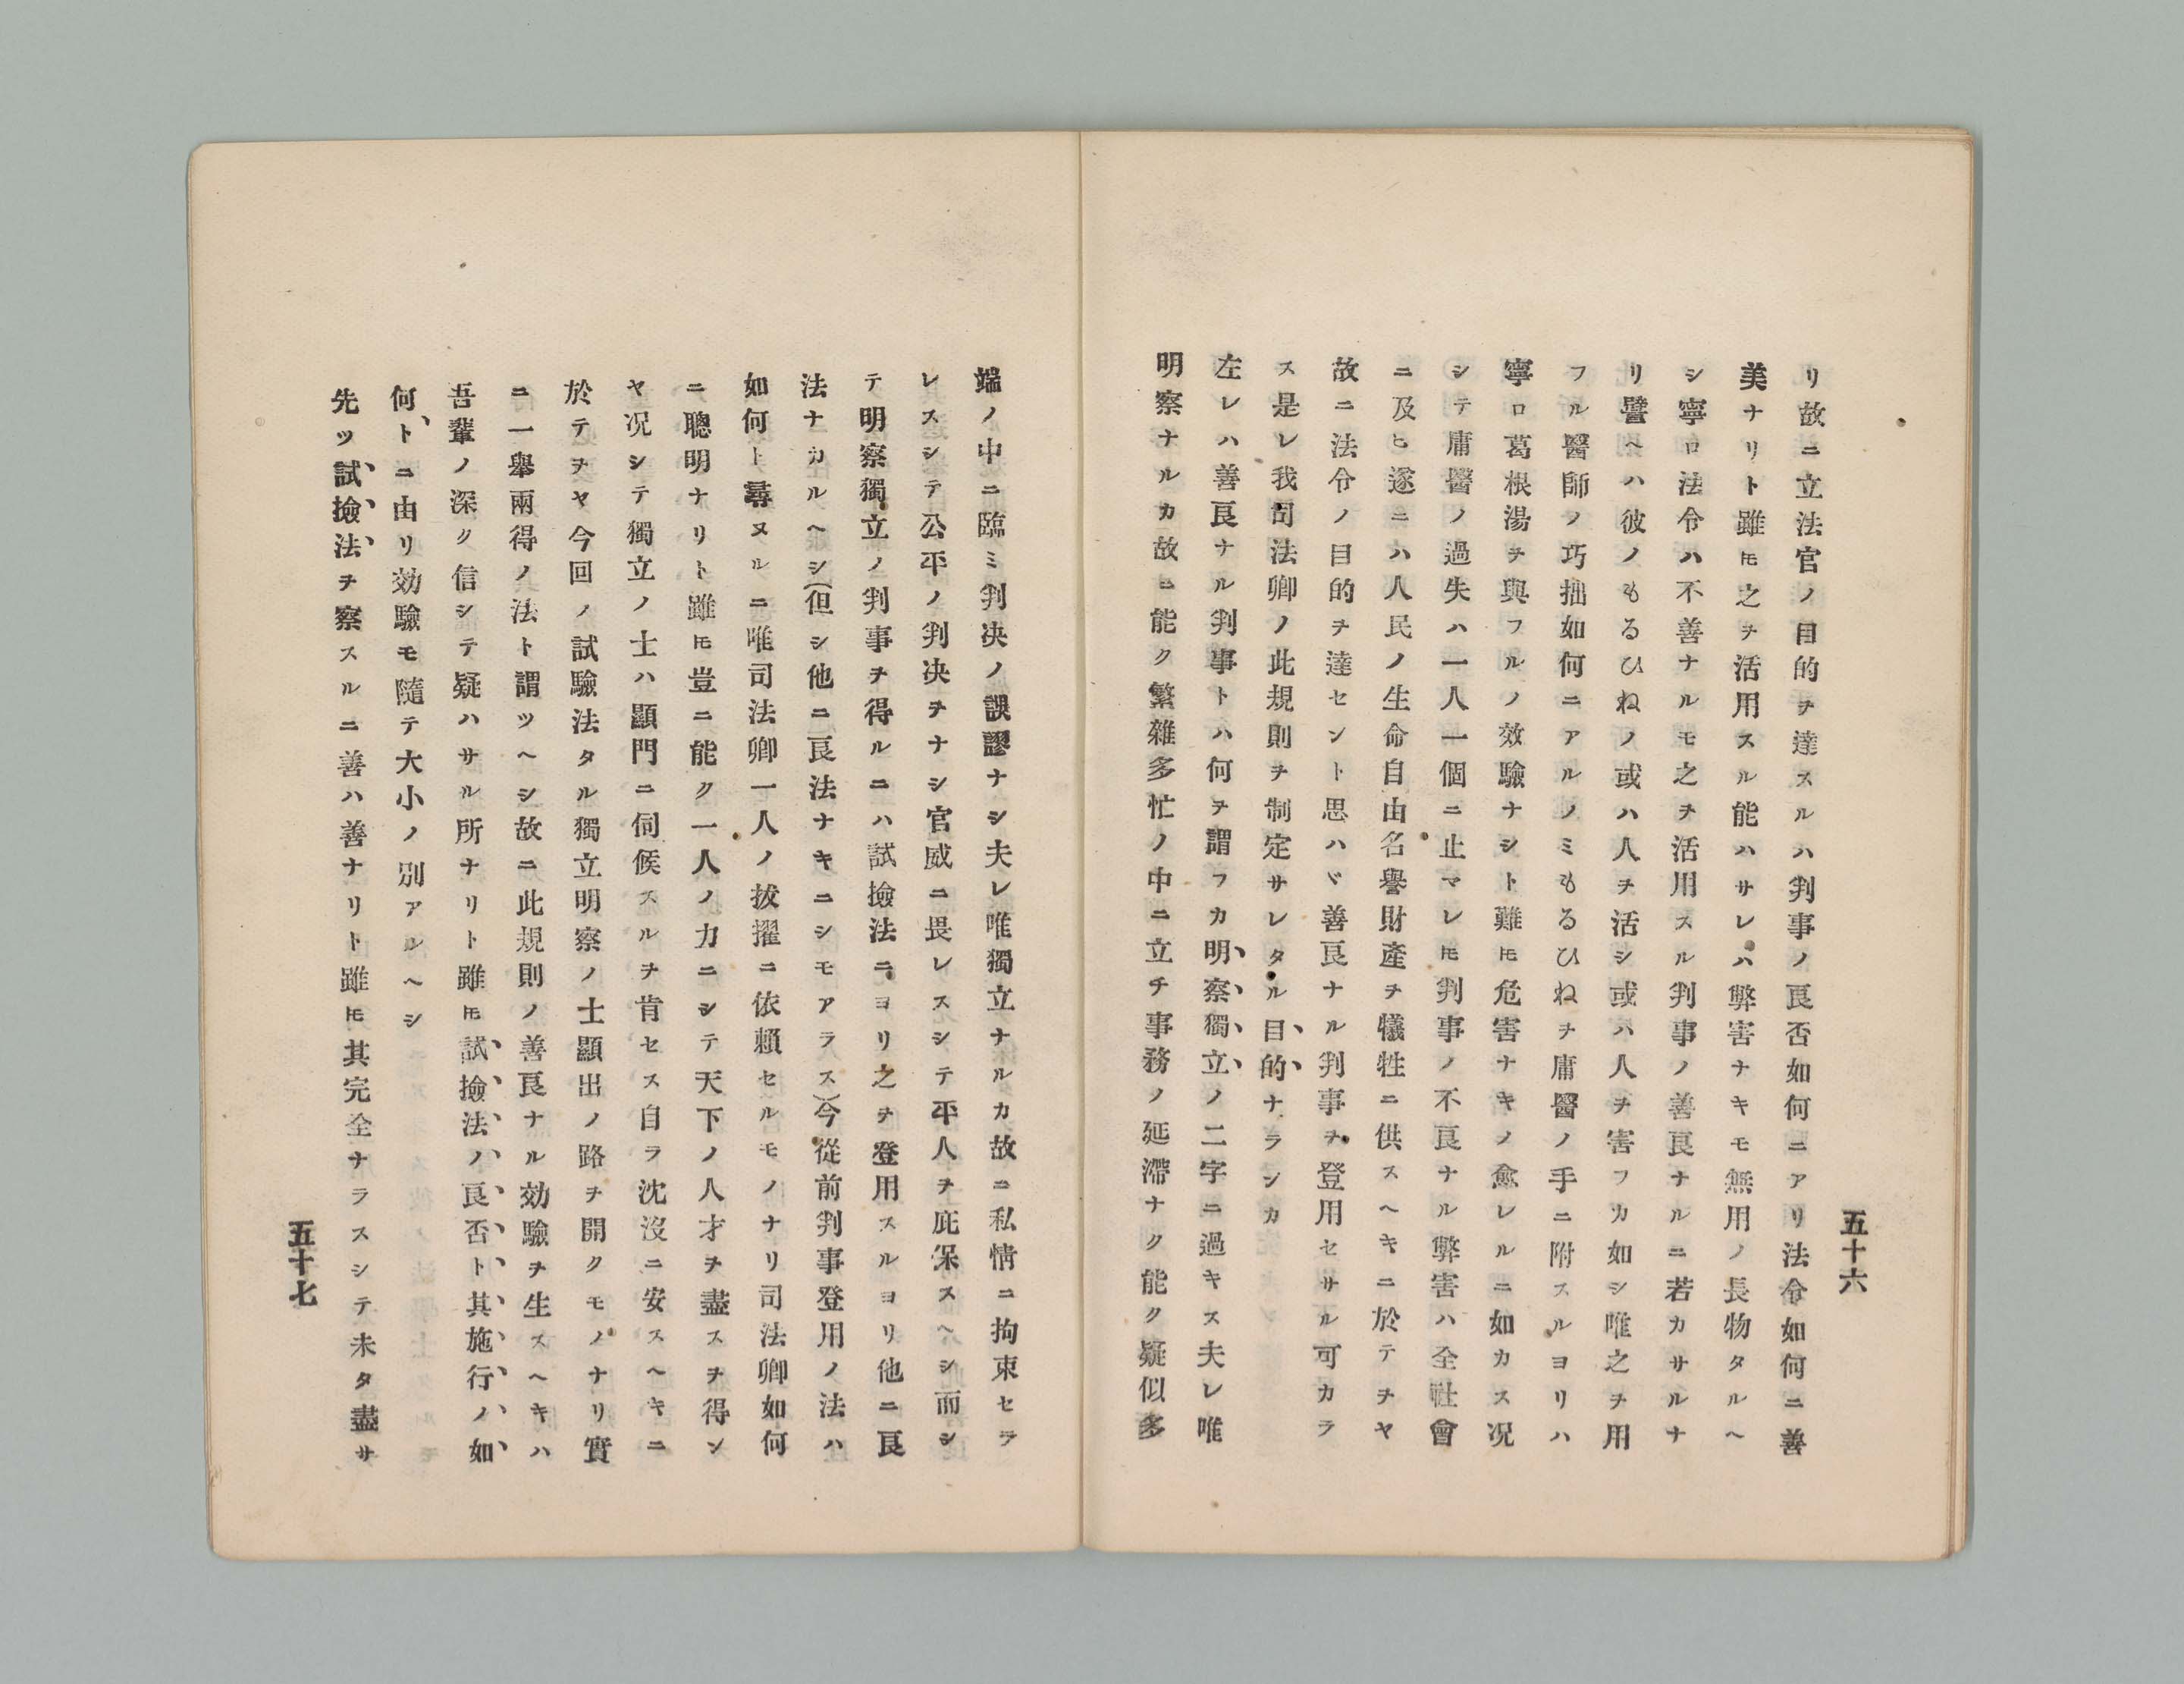 五十六
リ故ニ立法官ノ目的ヲ達スルハ判事ノ良否如何ニアリ法令如何ニ善
美ナリト雖𪜈之ヲ活用スル能ハサレハ弊害ナキモ無用ノ長物タルヘ
シ寧ロ法令ハ不善ナルモ之ヲ活用スル判事ノ善良ナルニ若カサルナ
リ譬ヘハ彼ノもるひねノ或ハ人ヲ活シ或ハ人ヲ害フカ如シ唯之ヲ用
フル醫師ノ巧拙如何ニアルノミもるひねヲ庸醫ノ手ニ附スルヨリハ
寧ロ葛根湯ヲ與フルノ效驗ナシト難𪜈危害ナキノ愈レルニ如カス况
シテ庸醫ノ過失ハ一人一個ニ止マレ𪜈判事ノ不良ナル弊害ハ全社會
ニ及ヒ遂ニハ人民ノ生命自由名譽財產ヲ犠牲ニ供スヘキニ於テヲヤ
故ニ法令ノ目的ヲ達セント思ハヾ善良ナル判事ヲ登用セサル可カラ
ス是レ我司法卿ノ此規則ヲ制定サレタル目的ナラシカ
左レハ善良ナル判事トハ何ヲ謂フカ明察獨立ノ二字ニ過キス夫レ唯
明察ナルカ故ニ能ク繁雜多忙ノ中ニ立チ事務ノ延滯ナク能ク疑似多
端ノ中ニ臨ミ判决ノ誤謬ナシ夫レ唯獨立ナルカ故ニ私情ニ拘束セラ
レスシテ公平ノ判决ヲナシ官威ニ畏レスシテ平人ヲ庇保スヘシ而シ
テ明察獨立ノ判事ヲ得ルニハ試撿法ニヨリ之ヲ登用スルヨリ他ニ良
法ナカルヘシ(但シ他ニ良法ナキニシモアラス)今從前判事登用ノ法ハ
如何ト尋ヌルニ唯司法卿一人ノ拔擢ニ依賴セルモノナリ司法卿如何
ニ聰明ナリト雖𪜈豈ニ能ク一人ノ力ニシテ天下ノ人才ヲ盡スヲ得ン
ヤ况シテ獨立ノ士ハ顯門ニ伺候スルヲ肯セス自ラ沈沒ニ安スヘキニ
於テヲヤ今回ノ試驗法タル獨立明察ノ士顯出ノ路ヲ開クモノナリ實
ニ一舉兩得ノ法ト謂ツヘシ故ニ此規則ノ善良ナル効驗ヲ生スヘキハ
吾輩ノ深ク信シテ疑ハサル所ナリト雖𪜈試撿法ノ良否ト其施行ノ如
何トニ由リ効驗モ隨テ大小ノ別アルヘシ
先ツ試撿法ヲ察スルニ善ハ善ナリト雖𪜈其完全ナラスシテ未タ盡サ
五十七